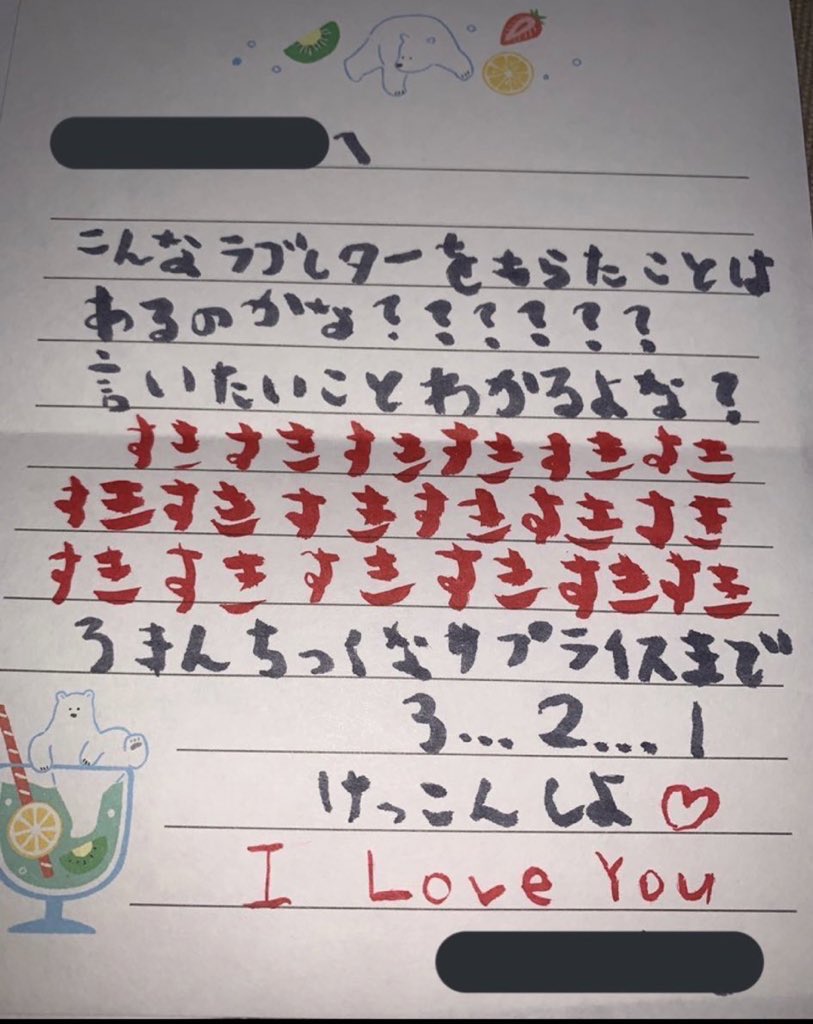 へ
こんなラブレターをもらたことは
あるのかな？？？？？？
言いたいことわかるよな？
すきすきすきすきすきすき
すきすきすきすきすきすき
すきすきすきすきすきすき
ろまんちっくなサプライズまで
3...2...1
けっこんしよ♡
I Love You